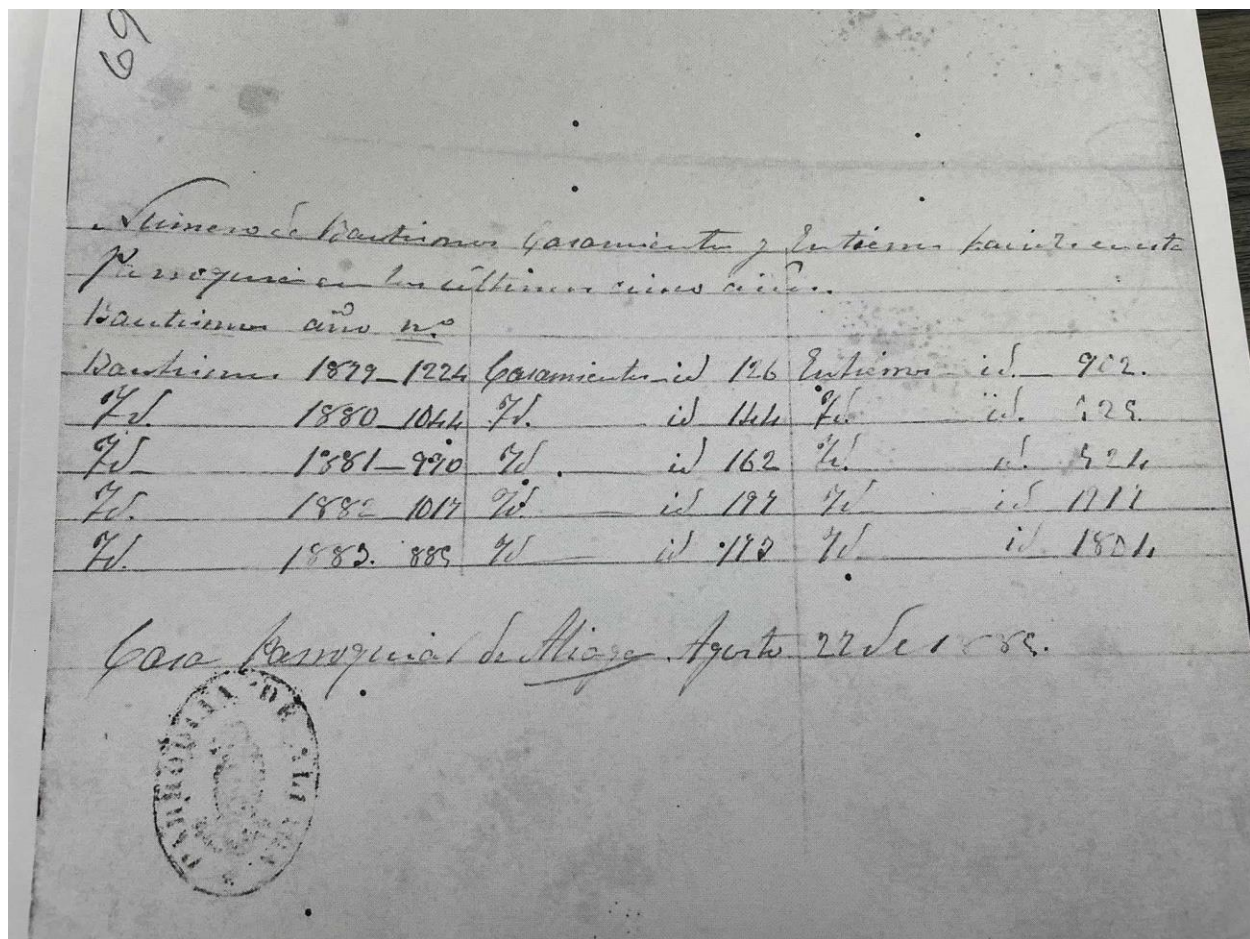 69
Numero de Bautismos Casamientos y Entierros en esta
Parroquia en los ultimos cinco años.
Bautismos año nº
Bautismos 1879 - 1224 Casamientos id 126 Entierros id. 902.
Id. 1880 - 1044 Id. id 144 Id. id.
Id. 1881 - 990 Id. id 162 Id. id.
Id. 1882 1017 Id. id 197 Id id
Id. 1883. 885 Id id 173 Id id.
Casa Parroquial de Aliaga Agosto 22 de 1885.
PARROQUIA DE ALIAGA